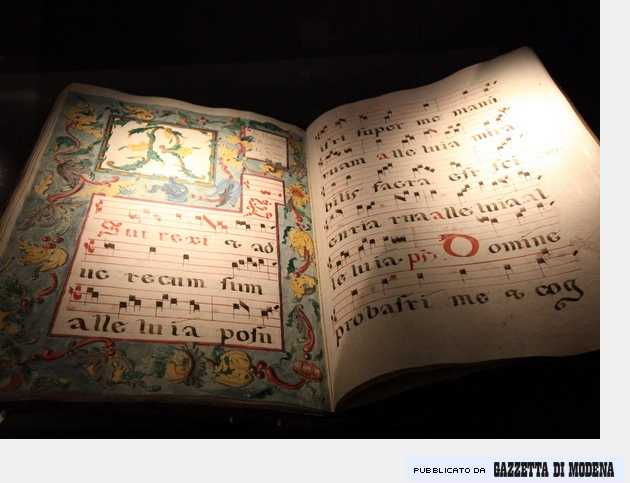 R
Esur rexi & ad
uc tecum sum
alle lu ia posu
isti super me manū
tuam alleluia mira,
bilis facta est sci
entia tua alleluia al
le lu ia. ps. Domine
probasti me & cog
PUBBLICATO DA GAZZETTA DI MODENA